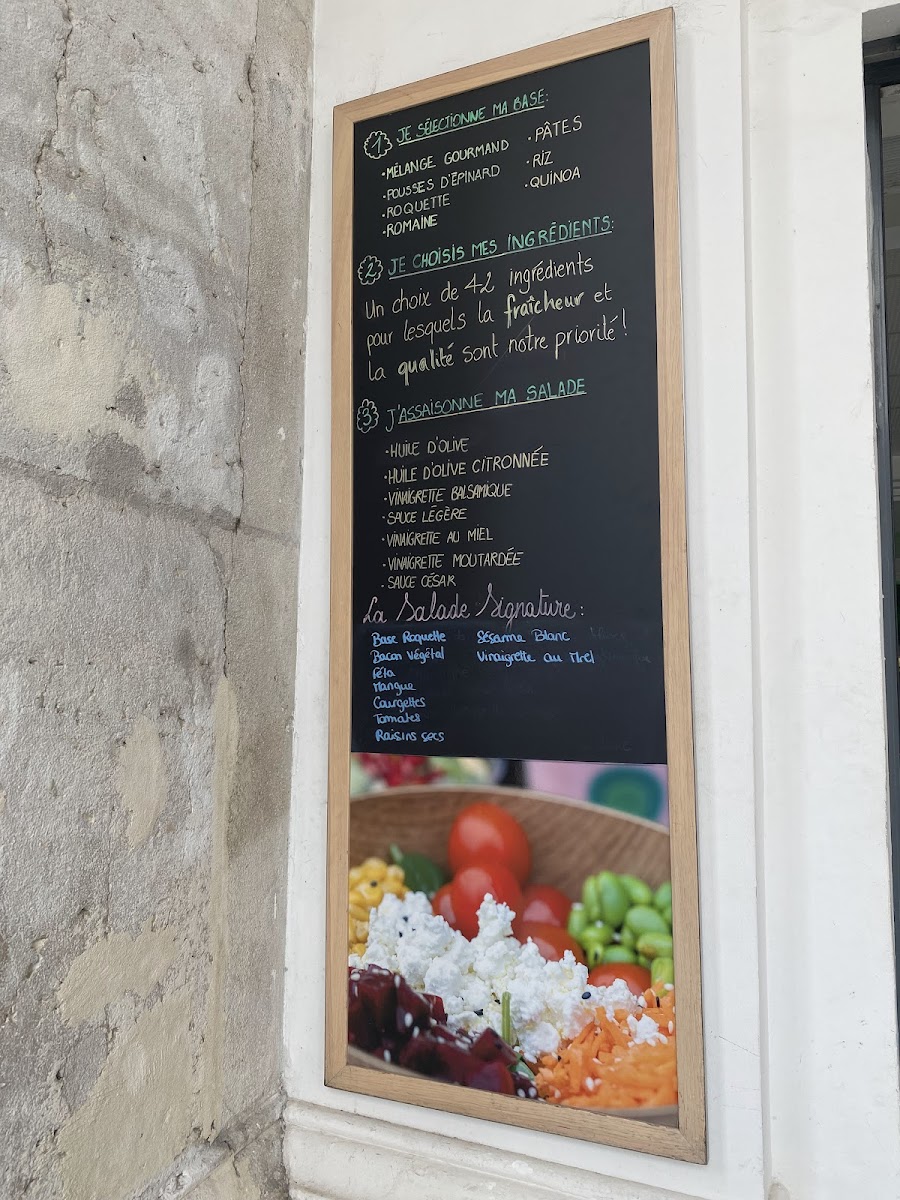 1 JE SÉLECTIONNE MA BASE:
• MÉLANGE GOURMAND
• POUSSES D'ÉPINARD
• ROQUETTE
• ROMAINE
• PÂTES
• RIZ
• QUINOA
2 JE CHOISIS MES INGRÉDIENTS:
Un choix de 42 ingrédients
pour lesquels la fraîcheur et
la qualité sont notre priorité!
3 J'ASSAISONNE MA SALADE
• HUILE D'OLIVE
• HUILE D'OLIVE CITRONNÉE
• VINAIGRETTE BALSAMIQUE
• SAUCE LÉGÈRE
• VINAIGRETTE AU MIEL
• VINAIGRETTE MOUTARDÉE
• SAUCE CÉSAR
La Salade Signature:
Base Roquette
Bacon Végétal
Féta
Mangue
Courgettes
Tomates
Raisins secs
Sésame Blanc
Vinaigrette au Miel